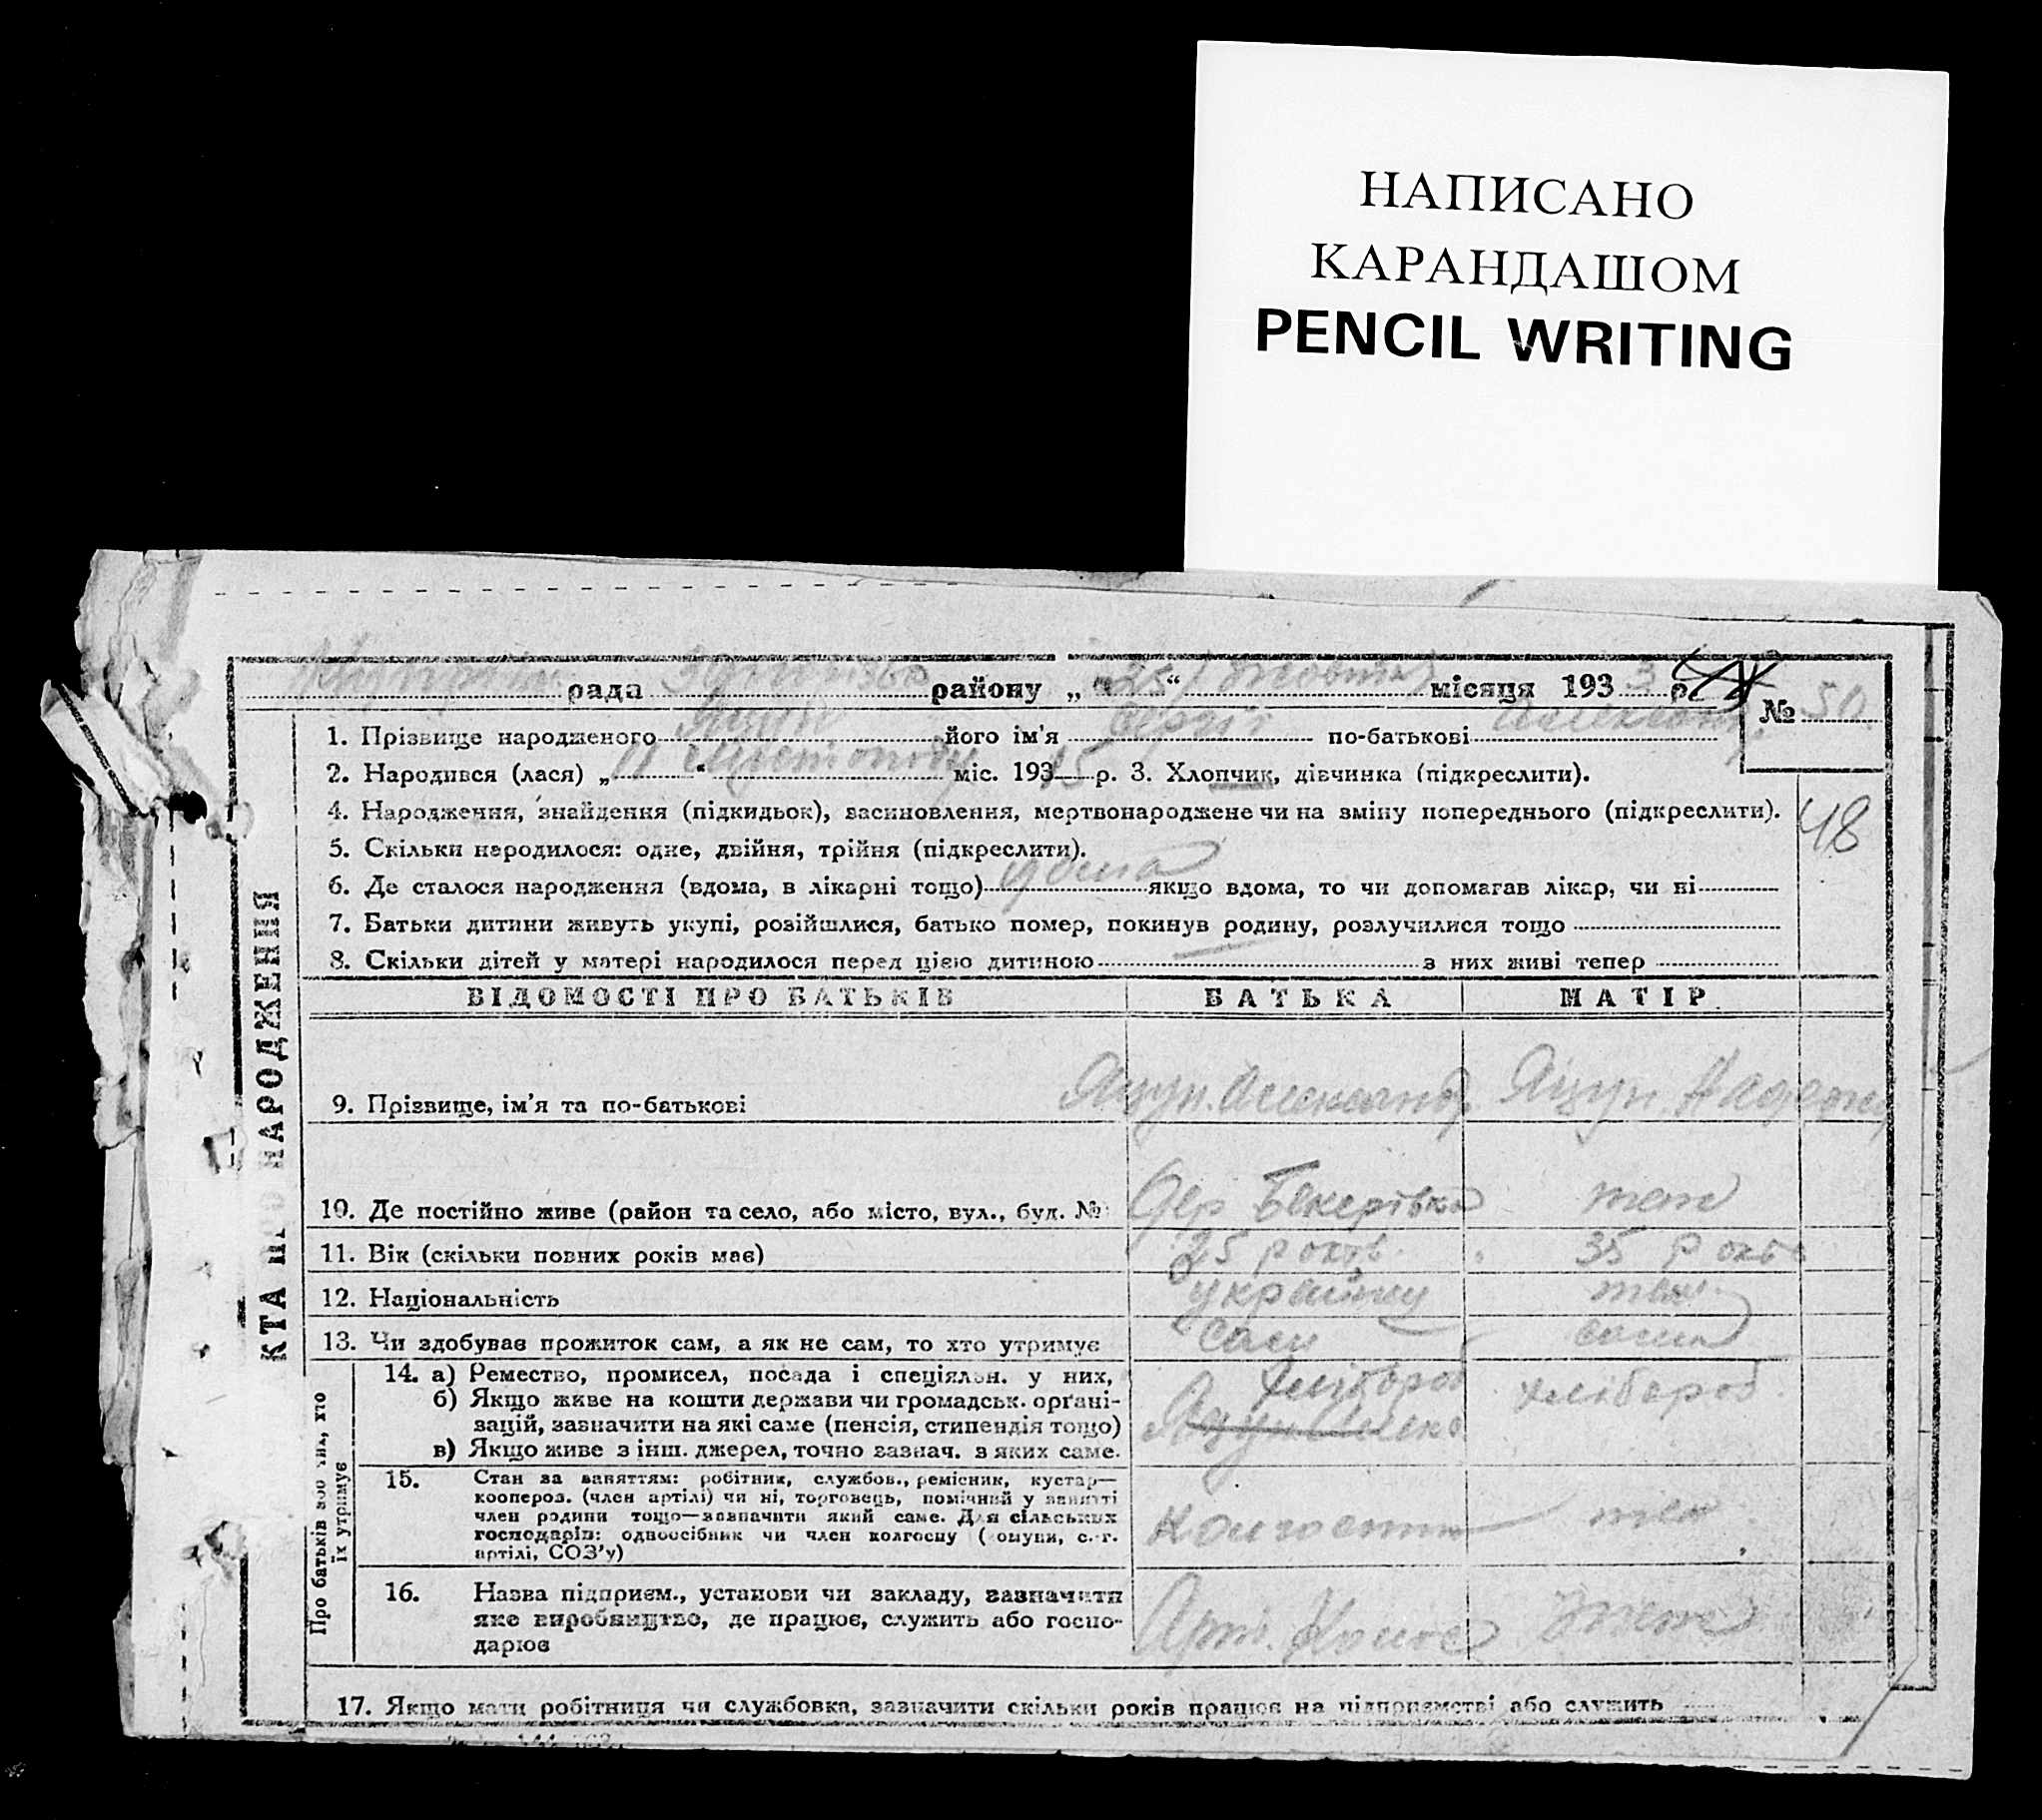 НАПИСАНО
КАРАНДАШОМ
PENCIL WRITING
рада района „ 25 “ жовтня місяця 193 3 р.
№ 50
1. Прізвище народженого Яцун його ім’я Сергій по-батькові Алексонд.
2. Народився (лася) „ 11 “ Листопаду міс. 193 р. 3. Хлопчик, дівчинка (підкреслити).
4. Народження, знайдення (підкидьок), засиновлення, мертвонароджене чи на зміну попереднього (підкреслити).
48
5. Скільки народилося: одне, двійня, трійня (підкреслити).
6. Де сталося народження (вдома, в лікарні тощо) дома якщо вдома, то чи допомагав лікар, чи ні
7. Батьки дитини живуть укупі, розійшлися, батько помер, покинув родину, розлучилися тощо
8. Скільки дітей у матері народилося перед цією дитиною — з них живі тепер
КТА ПРО НАРОДЖЕННЯ
ВІДОМОСТІ ПРО БАТЬКІВ БАТЬКА МАТІР
9. Прізвище, ім’я та по-батькові Яцун. Александ. Яцун
10. Де постійно живе (район та село, або місто, вул., буд. № Дер Бекерівка там
11. Вік (скільки повних років має) 25 років. 35 років
12. Національність українц там.
13. Чи здобуває прожиток сам, а як не сам, то хто утримує сам сама
Про батьків або тих, хто
їх утримує
14. а) Ремество, промисел, посада і спеціяльн. у них, хлібороб хлібороб.
б) Якщо живе на кошти держави чи громадськ. орґані-
зацій, зазначити на які саме (пенсія, стипендія тощо) Яцун Алекс
в) Якщо живе з інш. джерел, точно зазнач. з яких саме.
15. Стан за заняттям: робітник, службов., ремісник, кустар—
коопероз. (член артілі) чи ні, торговець, помічний у занятті
член родини тощо—зазначити який саме. Для сільських
господарів: одноосібник чи член колгоспу (комуни, с.-г.
артілі, СОЗ’у)
колгоспник там.
16. Назва підприєм., установи чи закладу, зазначити
яке виробництво, де працює, служить або госпо-
дарює
Арт. Колос
17. Якщо мати робітниця чи службовка, зазначити скільки років працює на підприємстві або служить